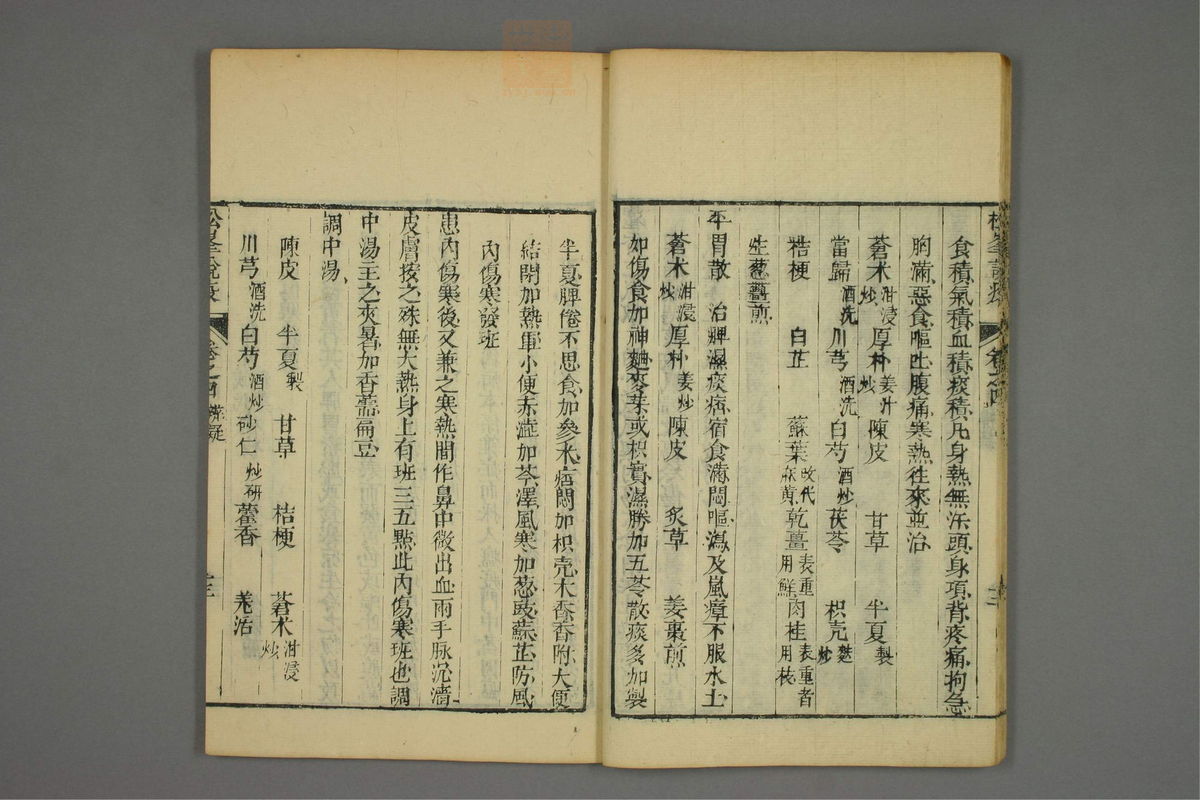 松峯說疫 卷之四 十二
食積氣積血積痰積凡身熱無汗頭身項背疼痛拘急
胸滿惡食嘔吐腹痛寒熱往來並治
蒼术泔浸炒 厚朴姜汁炒 陳皮 甘草 半夏製
當歸酒洗 川芎酒洗 白芍酒炒 茯苓 枳壳麩炒
桔梗 白芷 蘇葉改代麻黄 乾薑表重用鮮 肉桂表重者用枝
生葱薑煎
平胃散 治脾濕痰痞宿食滿悶嘔瀉及嵐瘴不服水土
蒼术泔浸炒 厚朴姜炒 陳皮 炙草 姜棗煎
如傷食加神麯麥芽或枳實濕勝加五苓散痰多加製
半夏脾倦不思食加參术痞悶加枳壳木香香附大便
結閉加熱軍小便赤澁加苓澤風寒加葱豉蘇芷防風
內傷寒發班
患內傷寒後又兼之寒熱間作鼻中微出血兩手脉沉濇
皮膚按之殊無大熱身上有班三五點此內傷寒班也調
中湯主之夾暑加香薷扁豆
調中湯
陳皮 半夏製 甘草 桔梗 蒼术泔浸炒
川芎酒洗 白芍酒炒 砂仁炒研 藿香 羌活
松峯說疫 卷之四 辨疑 十三